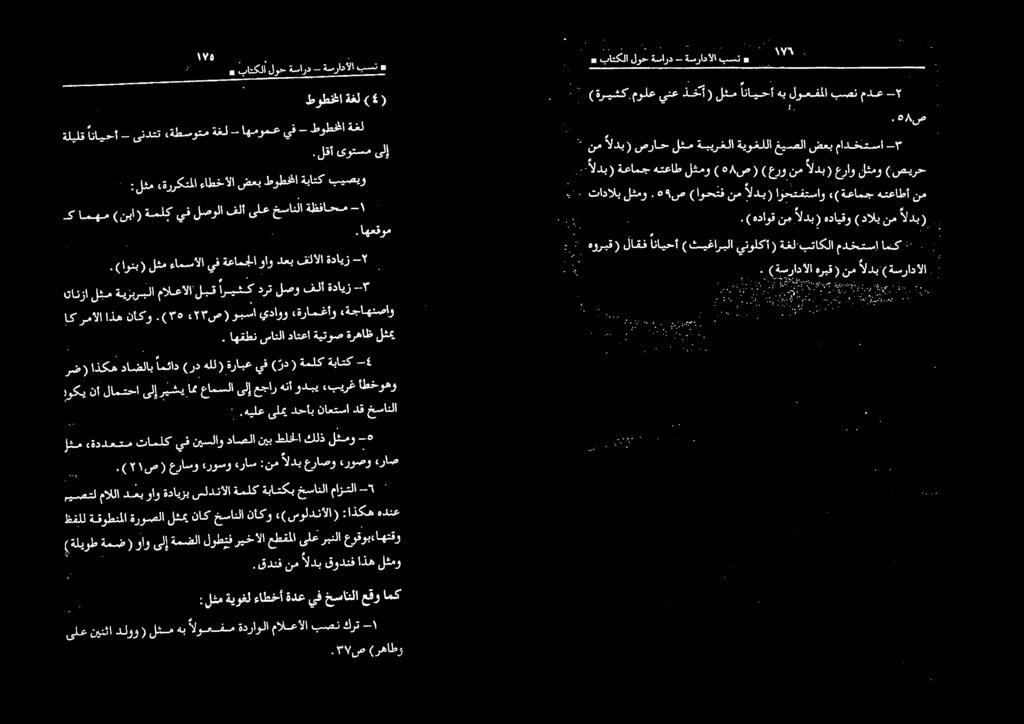 ١٧٥
■ نسب الأدارسة – دراسة حول الكتاب ■
(٤) لغة المخطوط
لغة المخطوط – في عمومها – لغة متوسطة، تتدنى – أحياناً قليلة
إلى مستوى أقل.
ويصيب كتابة المخطوط بعض الأخطاء المتكررة، مثل:
١– محافظة الناسخ على ألف الوصل في كلمة (ابن) مهما كـ
موقعها.
٢– زيادة الألف بعد واو الجماعة في الأسماء مثل (بنوا).
٣– زيادة ألف وصل ترد كثيراً قبل الأعلام البربرية مثل ازناتا
واصنهاجة، وأغمارة، ووادي اسبو (ص٢٣، ٣٥). وكان هذا الأمر كا
يمثل ظاهرة صوتية اعتاد الناس نطقها.
٤– كتابة كلمة (درّ) في عبارة (لله در) دائماً بالضاد هكذا (ضر
وهوخطأ غريب، يبدو أنه راجع إلى السماع مما يشير إلى احتمال أن يكون
الناسخ قد استعان بأحد يملى عليه.
٥– ومثل ذلك الخلط بين الصاد والسين في كلمات متعددة، مثل
صار، وصور، وصارع بدلاً من: سار، وسور، وسارع (ص٢١).
٦– التزام الناسخ بكتابة كلمة الأندلس بزيادة واو بعد اللام لتصير
عنده هكذا: (الأندلوس)، وكان الناسخ كان يمثل الصورة المنطوقة للفظ
وقتها،بوقوع النبر على المقطع الأخير فتطول الضمة إلى واو (ضمة طويلة)
ومثل هذا فندوق بدلاً من فندق.
كما وقع الناسخ في عدة أخطاء لغوية مثل:
١– ترك نصب الأعلام الواردة مفعولاً به مثل (وولد اثنين على
وطاهر) ص٣٧.
١٧٦
■ نسب الأدارسة – دراسة حول الكتاب ■
٢– عدم نصب المفعول به أحياناً مثل (أخذ عني علوم كثيرة)
ص٥٨.
٣– استخدام بعض الصيغ اللغوية الغريبة مثل حارص (بدلاً من
حريص) ومثل وارع (بدلاً من ورع) (ص٥٨) ومثل طاعته جماعة (بدلاً
من أطاعته جماعة)، واستفتحوا (بدلاً من فتحوا) ص٥٩. ومثل بلادات
(بدلاً من بلاد) وقياده (بدلاً من قواده).
كما استخدم الكاتب لغة (أكلوني البراغيث) أحياناً فقال (قبروه
الأدارسة) بدلاً من (قبره الأدارسة).